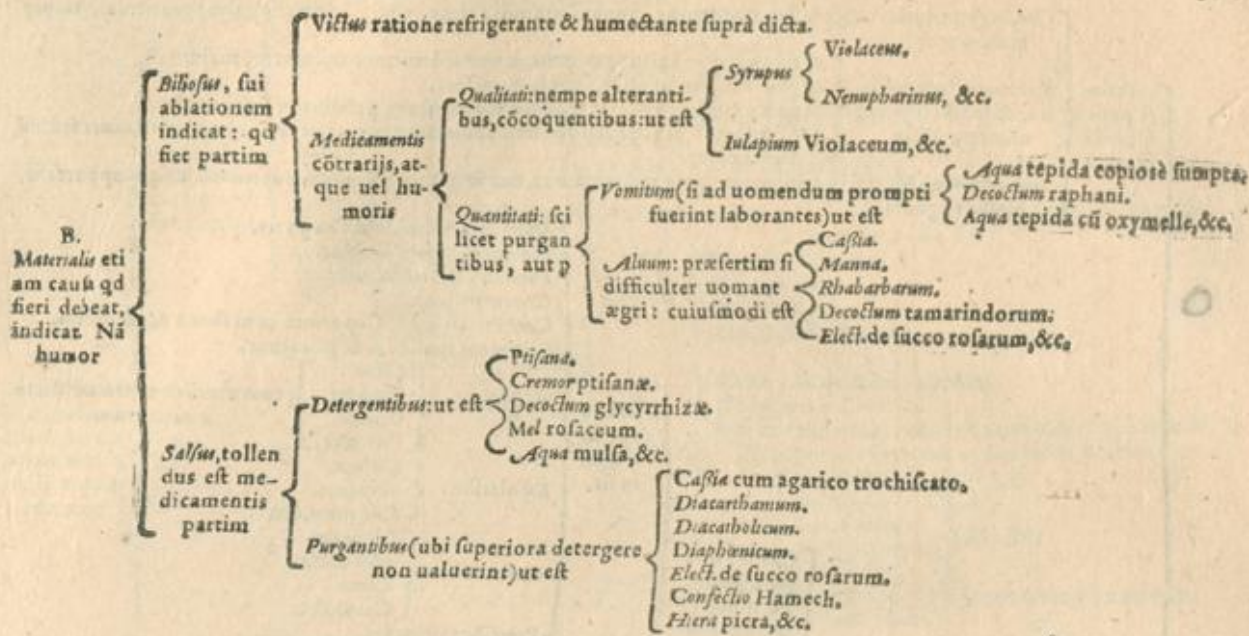 B.
Materialis eti
am causa qd
fieri debeat,
indicat. Nā
humor
Biliosus, sui
ablationem
indicat: qd
fiet partim
Victus ratione refrigerante & humectante suprà dicta.
Medicamentis
cōtrarijs, at-
que uel hu-
moris
Qualitati: nempe alteranti-
bus, cōcoquentibus: ut est
Syrupus
Violaceus.
Nenupharinus, &c.
Iulapium Violaceum, &c.
Quantitati: sci
licet purgan
tibus, aut p
Vomitum (si ad uomendum prompti
fuerint laborantes) ut est
Aqua tepida copiosè sumpta.
Decoctum raphani.
Aqua tepida cū oxymelle, &c.
Aluum: præsertim si
difficulter uomant
ægri: cuiusmodi est
Cassia.
Manna.
Rhabarbarum.
Decoctum tamarindorum.
Elect. de succo rosarum, &c.
Salsus, tollen
dus est me-
dicamentis
partim
Detergentibus: ut est
Ptisana.
Cremor ptisanæ.
Decoctum glycyrrhizæ.
Mel rosaceum.
Aqua mulsa, &c.
Purgantibus (ubi superiora detergere
non ualuerint) ut est
Cassia cum agarico trochiscato.
Diacarthamum.
Diacatholicum.
Diaphœnicum.
Elect. de succo rosarum.
Confectio Hamech.
Hiera picra, &c.